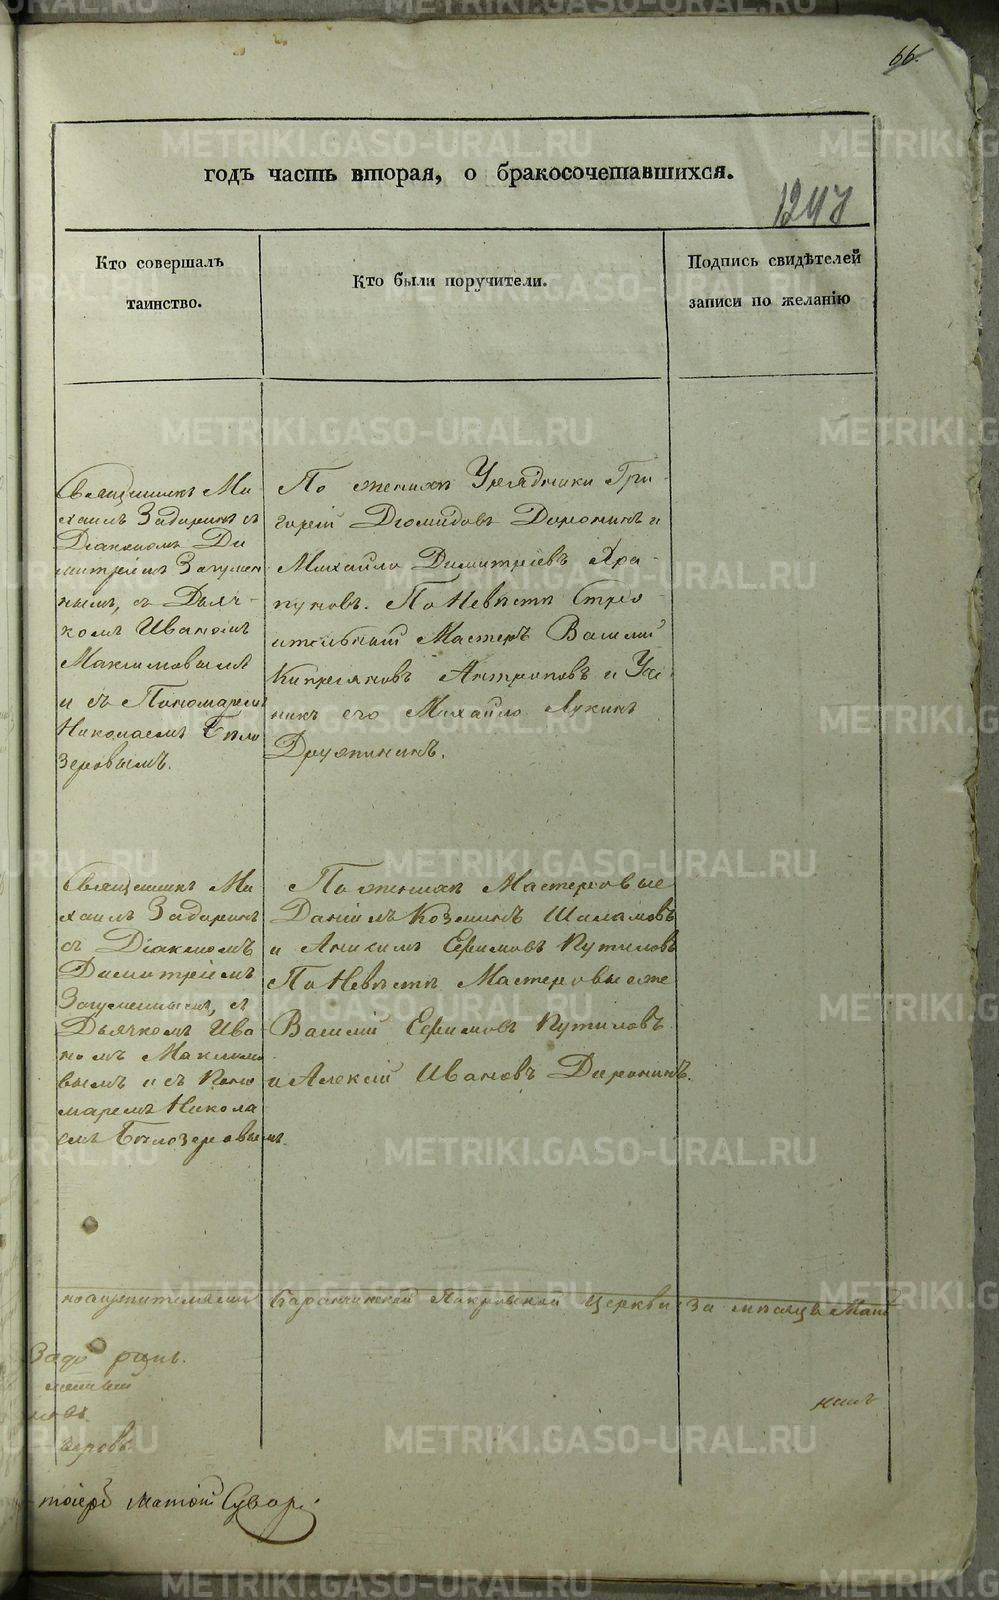 66.
годъ часть вторая, о бракосочетавшихся.
1247
Кто совершалъ
таинство.
Кто были поручители.
Подпись свидѣтелей
записи по желанію
Священникъ Ми-
хаилъ Задоринъ съ
Діакономъ Ди
митріемъ Загумен
нымъ, съ Дьяч-
комъ Иваномъ
Максимовымъ
и съ Пономаремъ
Николаемъ Бѣло
зеровымъ.
По женихѣ Урядники Гри-
горій Діомидовъ Доронинъ и
Михайло Димитріевъ Хра-
пуновъ. По Невѣстѣ Стро
ительный Мастеръ Василій
Кипреяновъ Антроповъ и
никъ его Михайло Лукинъ
Дружининъ.
Священникъ Ми
хаилъ Задоринъ
съ Діакономъ
Димитріемъ
Загуменнымъ, съ
Дьячкомъ Ива
номъ Максимо
вымъ и съ Поно
маремъ Никола
емъ Бѣлозеровымъ.
По женихѣ Мастеровые
Даніилъ Козминъ Шаламовъ
и Анисимъ Ефимовъ Путиловъ
По Невѣстѣ Мастеровые же
Василій Ефимовъ Путиловъ
и Алексій Ивановъ Доронинъ.
Баранчинской Покровской Церкви за мѣсяцъ Маій
Задоринъ.
менный
новъ.
зеровъ.
тоіерей
METRIKI.GASO-URAL.RU